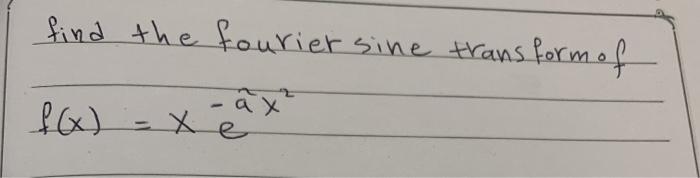 find the fourier sine transform of
f(x) = x e^-a²x²